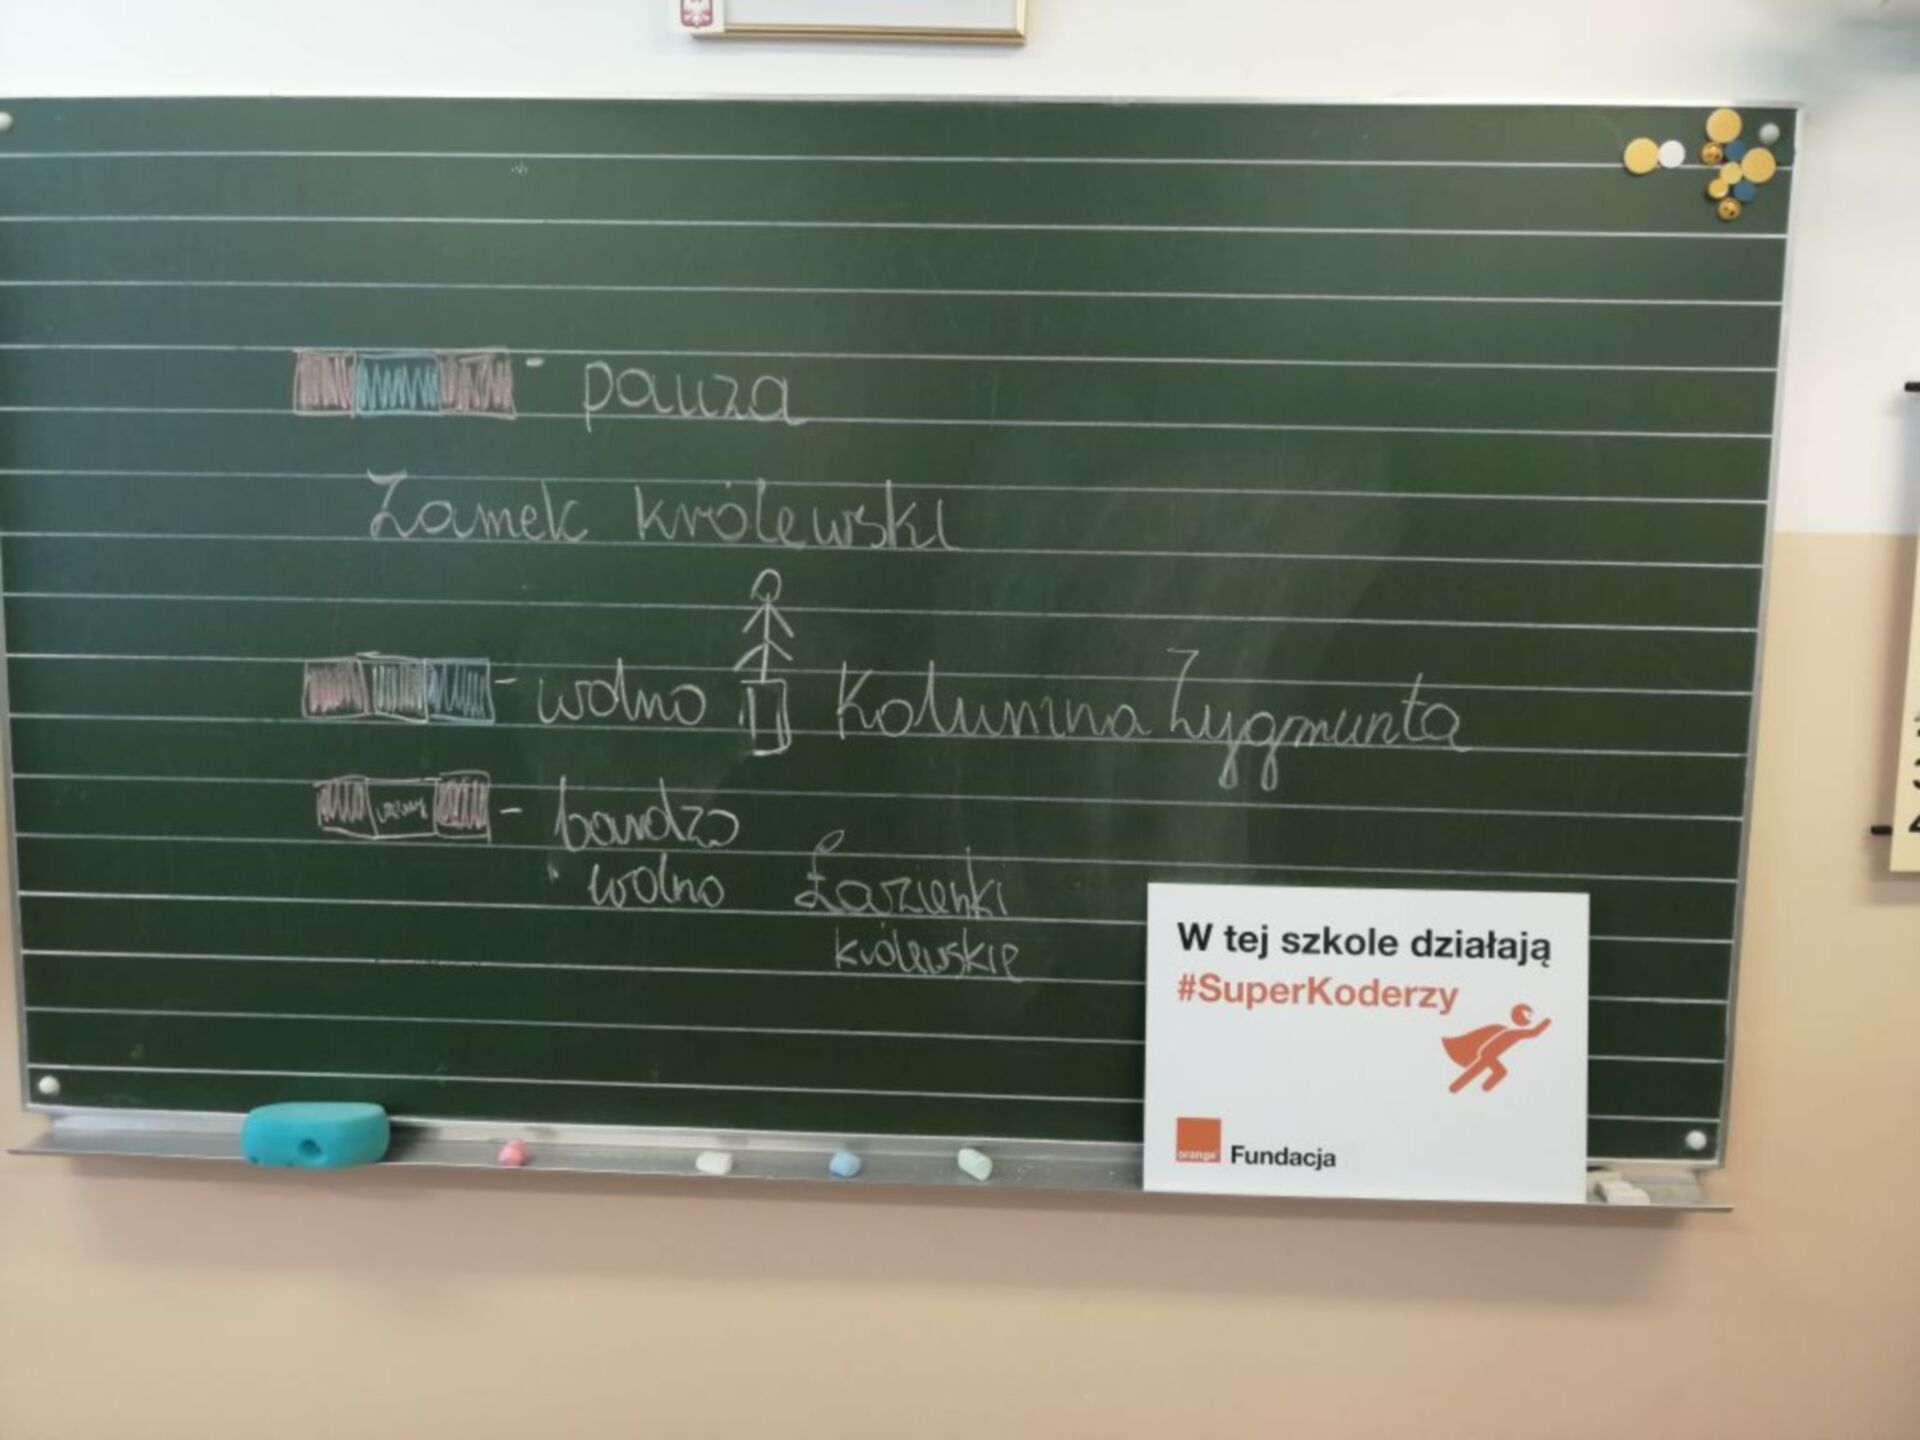 - pauza
Zamek królewski
- wolno Kolumna Zygmunta
- bardzo
wolno Łazienki
królewskie
W tej szkole działają
#SuperKoderzy
orange
Fundacja